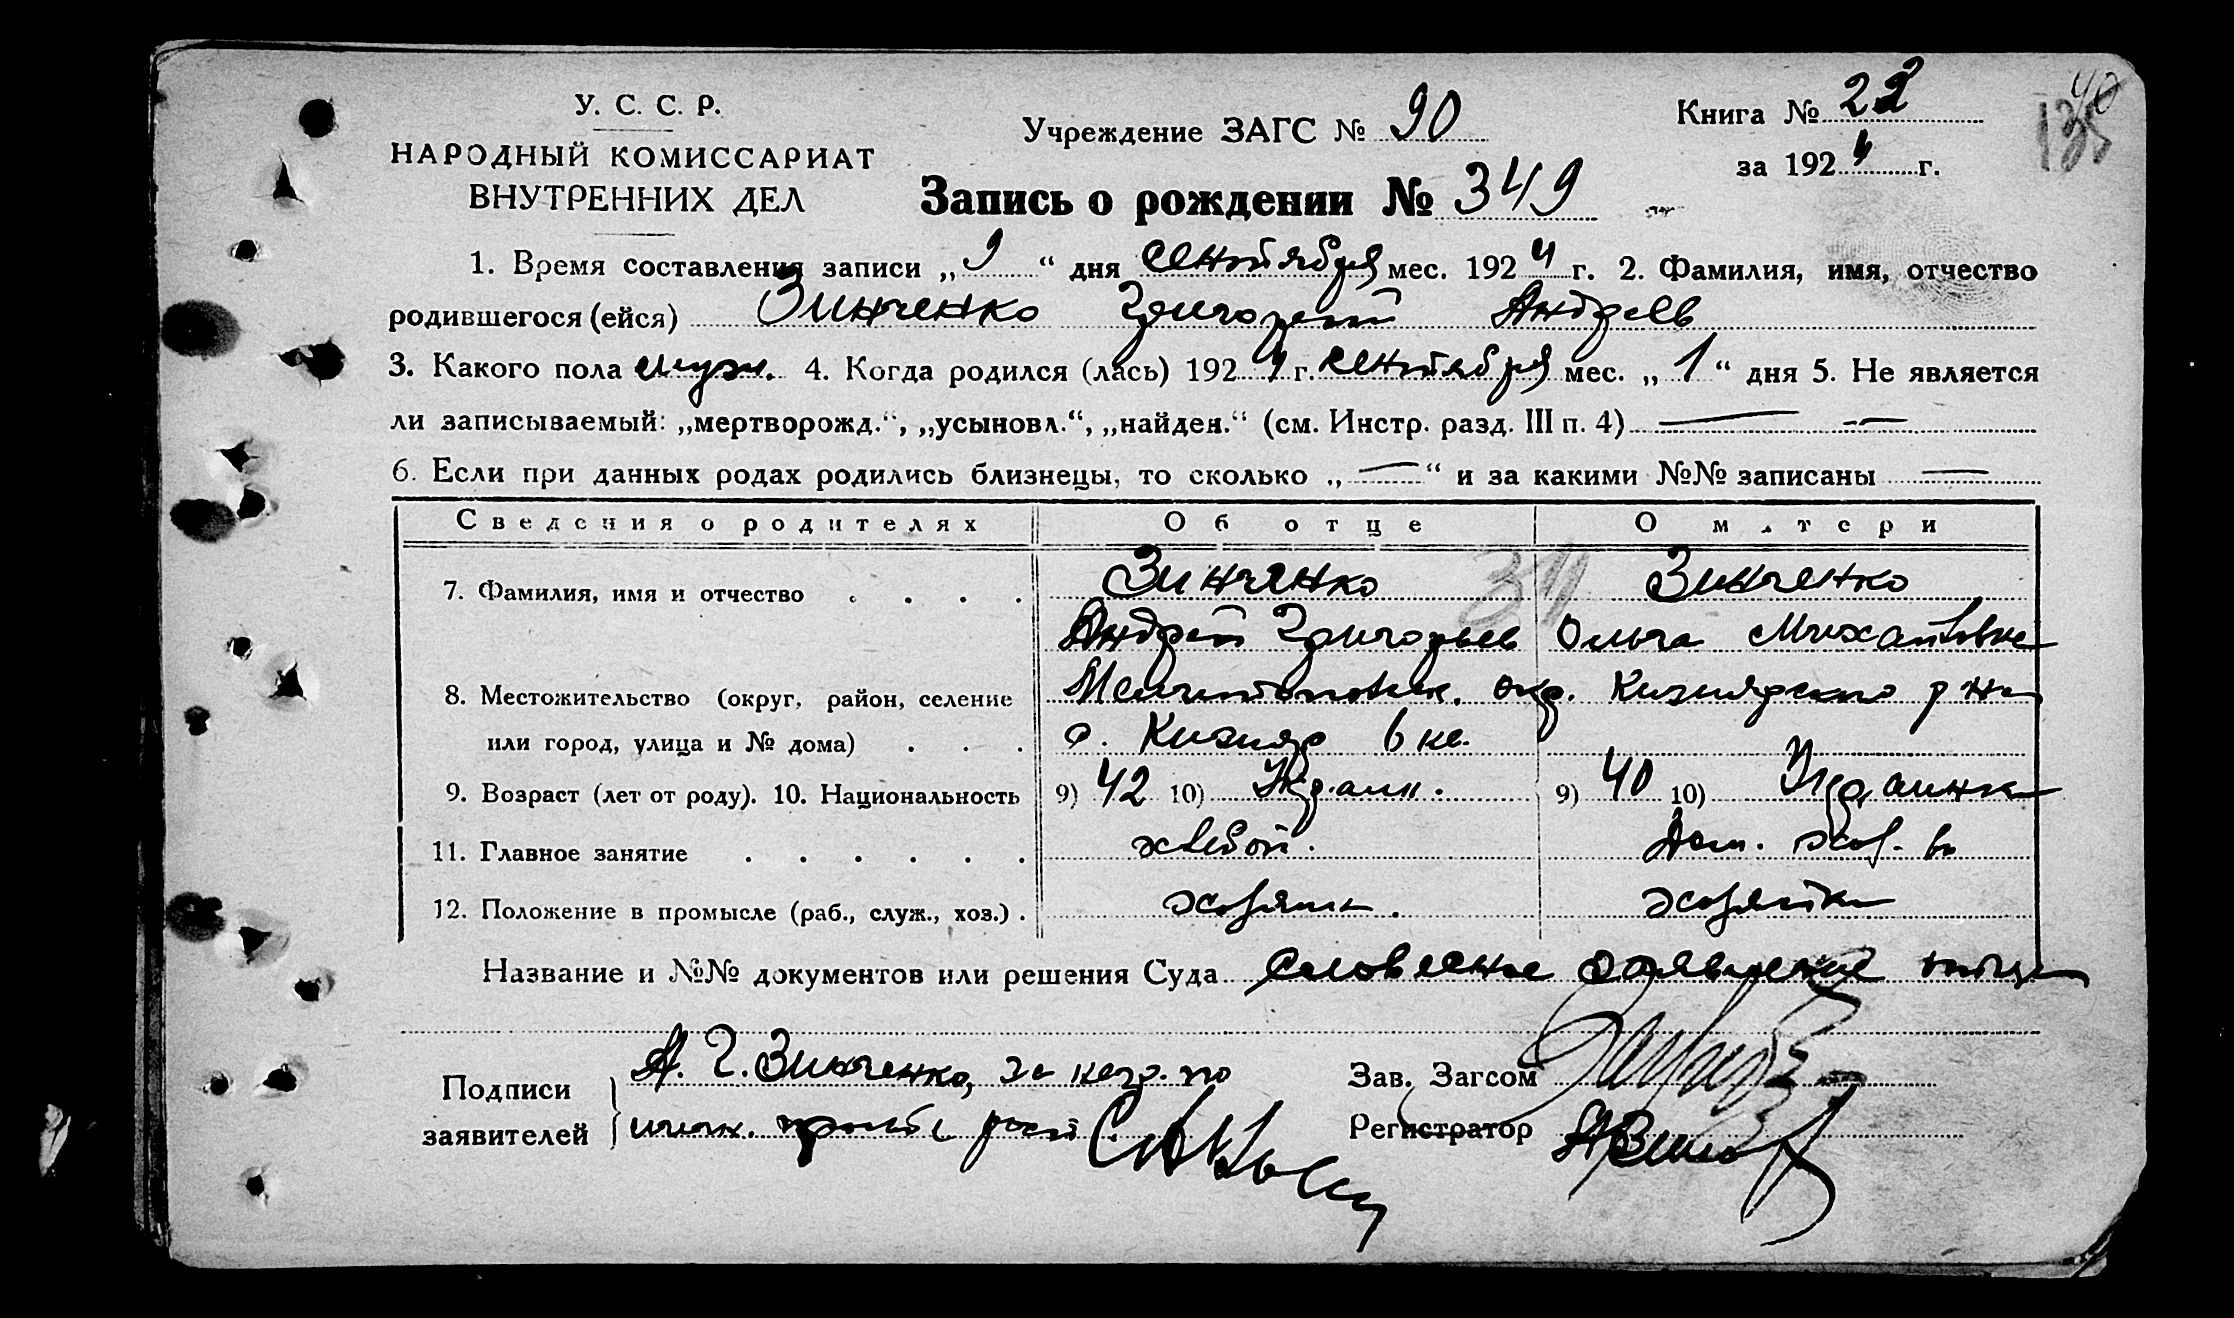 У. С. С. Р.
НАРОДНЫЙ КОМИССАРИАТ
ВНУТРЕННИХ ДЕЛ
Учреждение ЗАГС № 90
Книга № 22
за 1924 г.
Запись о рождении № 349
1. Время составления записи „9“ дня сентября мес. 1924 г. 2. Фамилия, имя, отчество
родившегося (ейся) Зинченко Григорий Андреев
3. Какого пола муж. 4. Когда родился (лась) 1924 г. сентября мес. „1“ дня 5. Не является
ли записываемый: „мертворожд.“, „усыновл.“, „найден.“ (см. Инстр. разд. III п. 4) — —
6. Если при данных родах родились близнецы, то сколько „—“ и за какими №№ записаны —
Сведения о родителях Об отце О матери
7. Фамилия, имя и отчество . . . . Зинченко Зинченко
Андрей Григорьев Ольга Михайловна
8. Местожительство (округ, район, селение Мелитопольск. окр. Кизиярского р-на
или город, улица и № дома) . . . с. Кизияр
9. Возраст (лет от роду). 10. Национальность 9) 42 10) Украин. 9) 40 10) Украинка
11. Главное занятие . . . . . . хлебоп. Дом. хоз-во
12. Положение в промысле (раб., служ., хоз.) . хозяин. хозяйка
Название и №№ документов или решения Суда словесное заявление отца
Подписи заявителей А. Г. Зинченко, за негр. по
Зав. Загсом
Регистратор